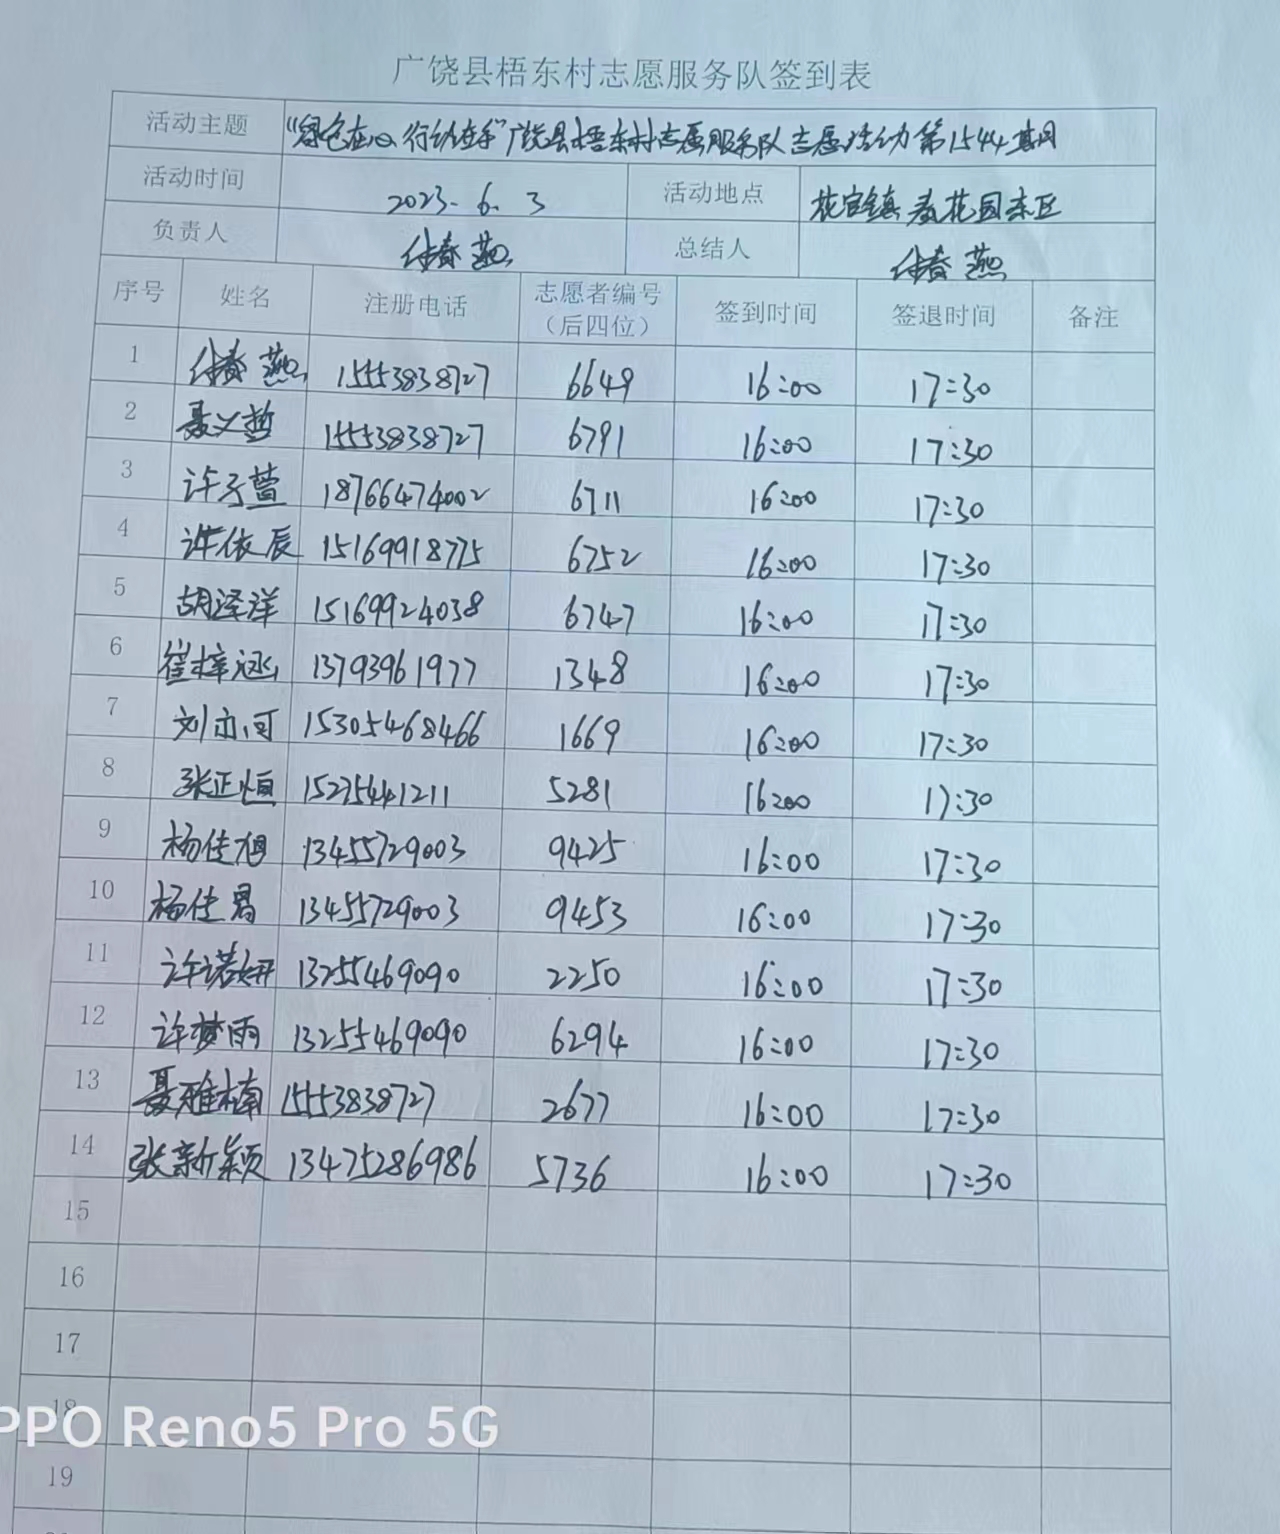 广饶县梧东村志愿服务队签到表
活动主题 “绿色在心 行动在手”广饶县梧东村志愿服务队志愿活动第1544期
活动时间 2023.6.3 活动地点 花官镇 花园东区
负责人 付春燕 总结人 付春燕
序号 姓名 注册电话 志愿者编号（后四位） 签到时间 签退时间 备注
1 付春燕 15553838727 6649 16:00 17:30
2 聂义哲 15553838727 6791 16:00 17:30
3 许子萱 18766474002 6711 16:00 17:30
4 许依辰 15169918775 6752 16:00 17:30
5 胡泽洋 15169924038 6747 16:00 17:30
6 崔梓涵 13793961977 1348 16:00 17:30
7 刘亦可 15305468466 1669 16:00 17:30
8 张正恒 15275441211 5281 16:00 17:30
9 杨佳旭 13455729003 9425 16:00 17:30
10 杨佳 13455729003 9453 16:00 17:30
11 许诺妍 13255469090 2250 16:00 17:30
12 许梦雨 13255469090 6294 16:00 17:30
13 聂雅楠 15553838727 2677 16:00 17:30
14 张新颖 13475286986 5736 16:00 17:30
15
16
17
18
PPO Reno5 Pro 5G
19